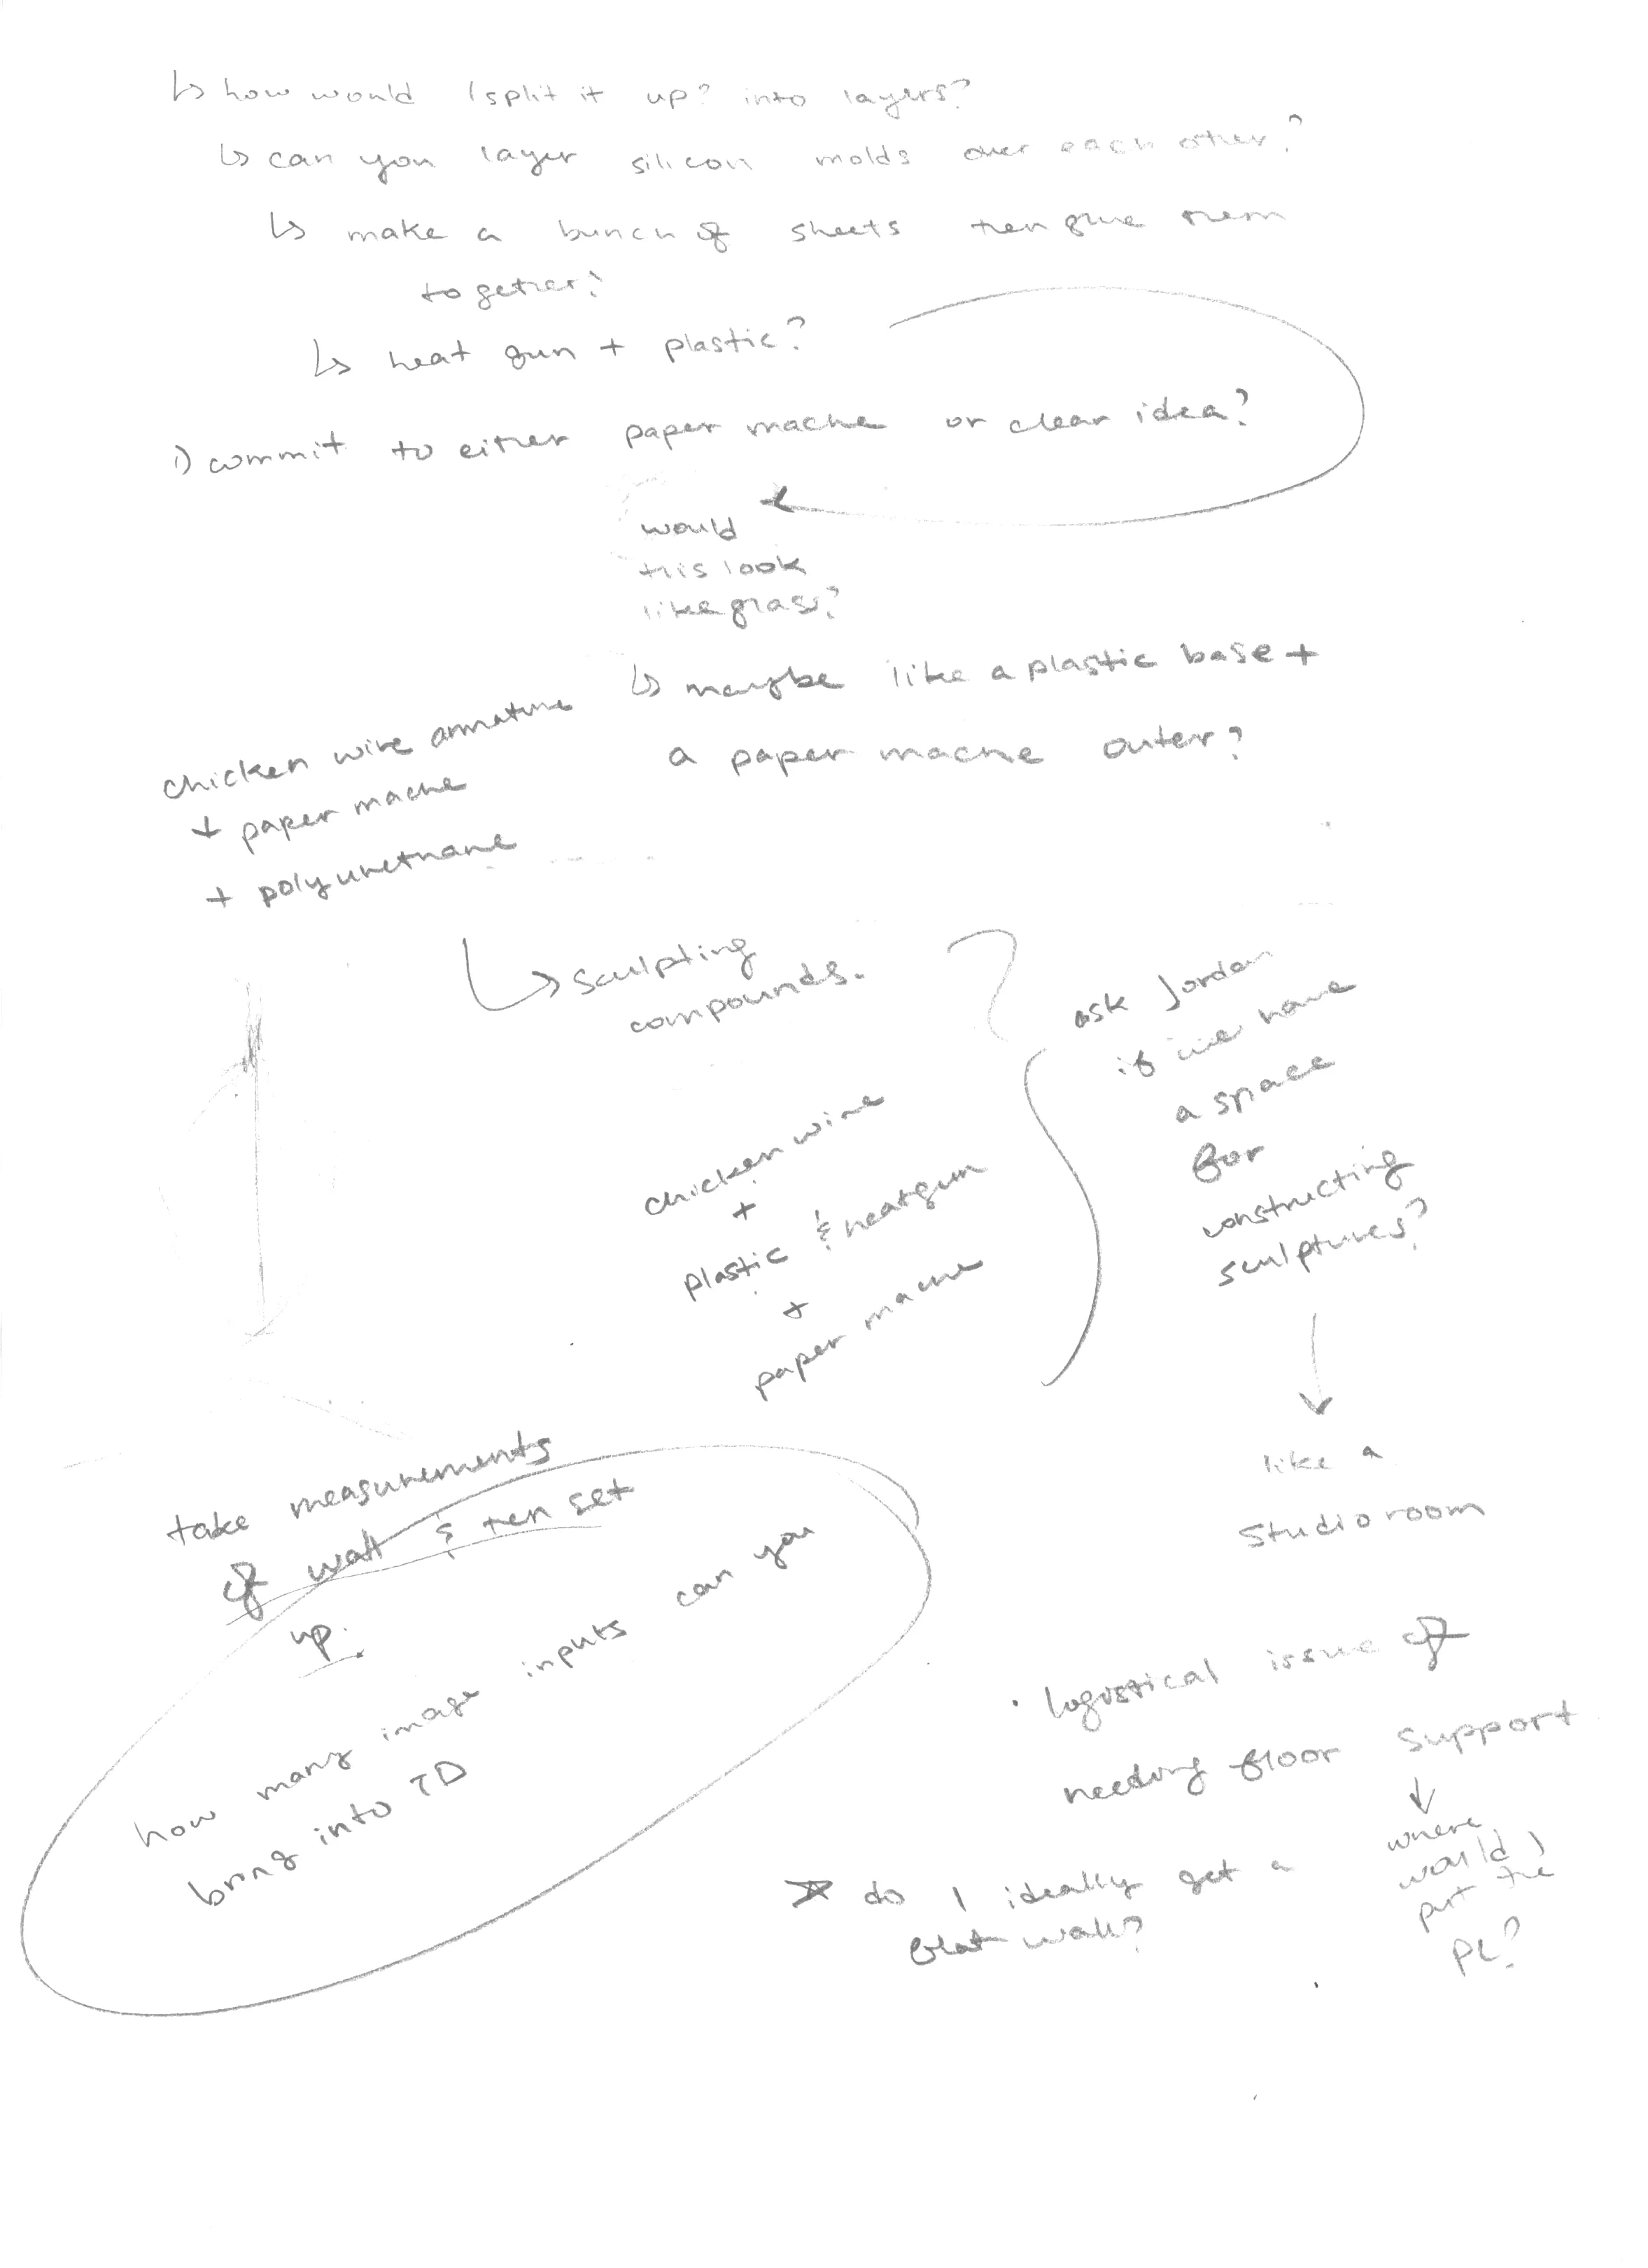 ↳ how would I split it up? into layers?
↳ can you layer silicon molds over each other?
↳ make a bunch of sheets then glue them
together?
↳ heat gun + plastic?
1) commit to either paper mache or clear idea?
would
this look
like glass?
↳ maybe like a plastic base +
a paper mache outer?
chicken wire armature
+ paper mache
+ polyurethane
↳ sculpting
compounds.
chicken wire
+
plastic & heatgun
+
paper mache
ask Jordan
if we have
a space
for
constructing
sculptures?
↓
like a
studio room
take measurements
of wall & then set
up.
how many image inputs can you
bring into TD
• logistical issue of
needing floor support
↓
where
would I
put the
PC?
☆ do I ideally get a
flat wall?